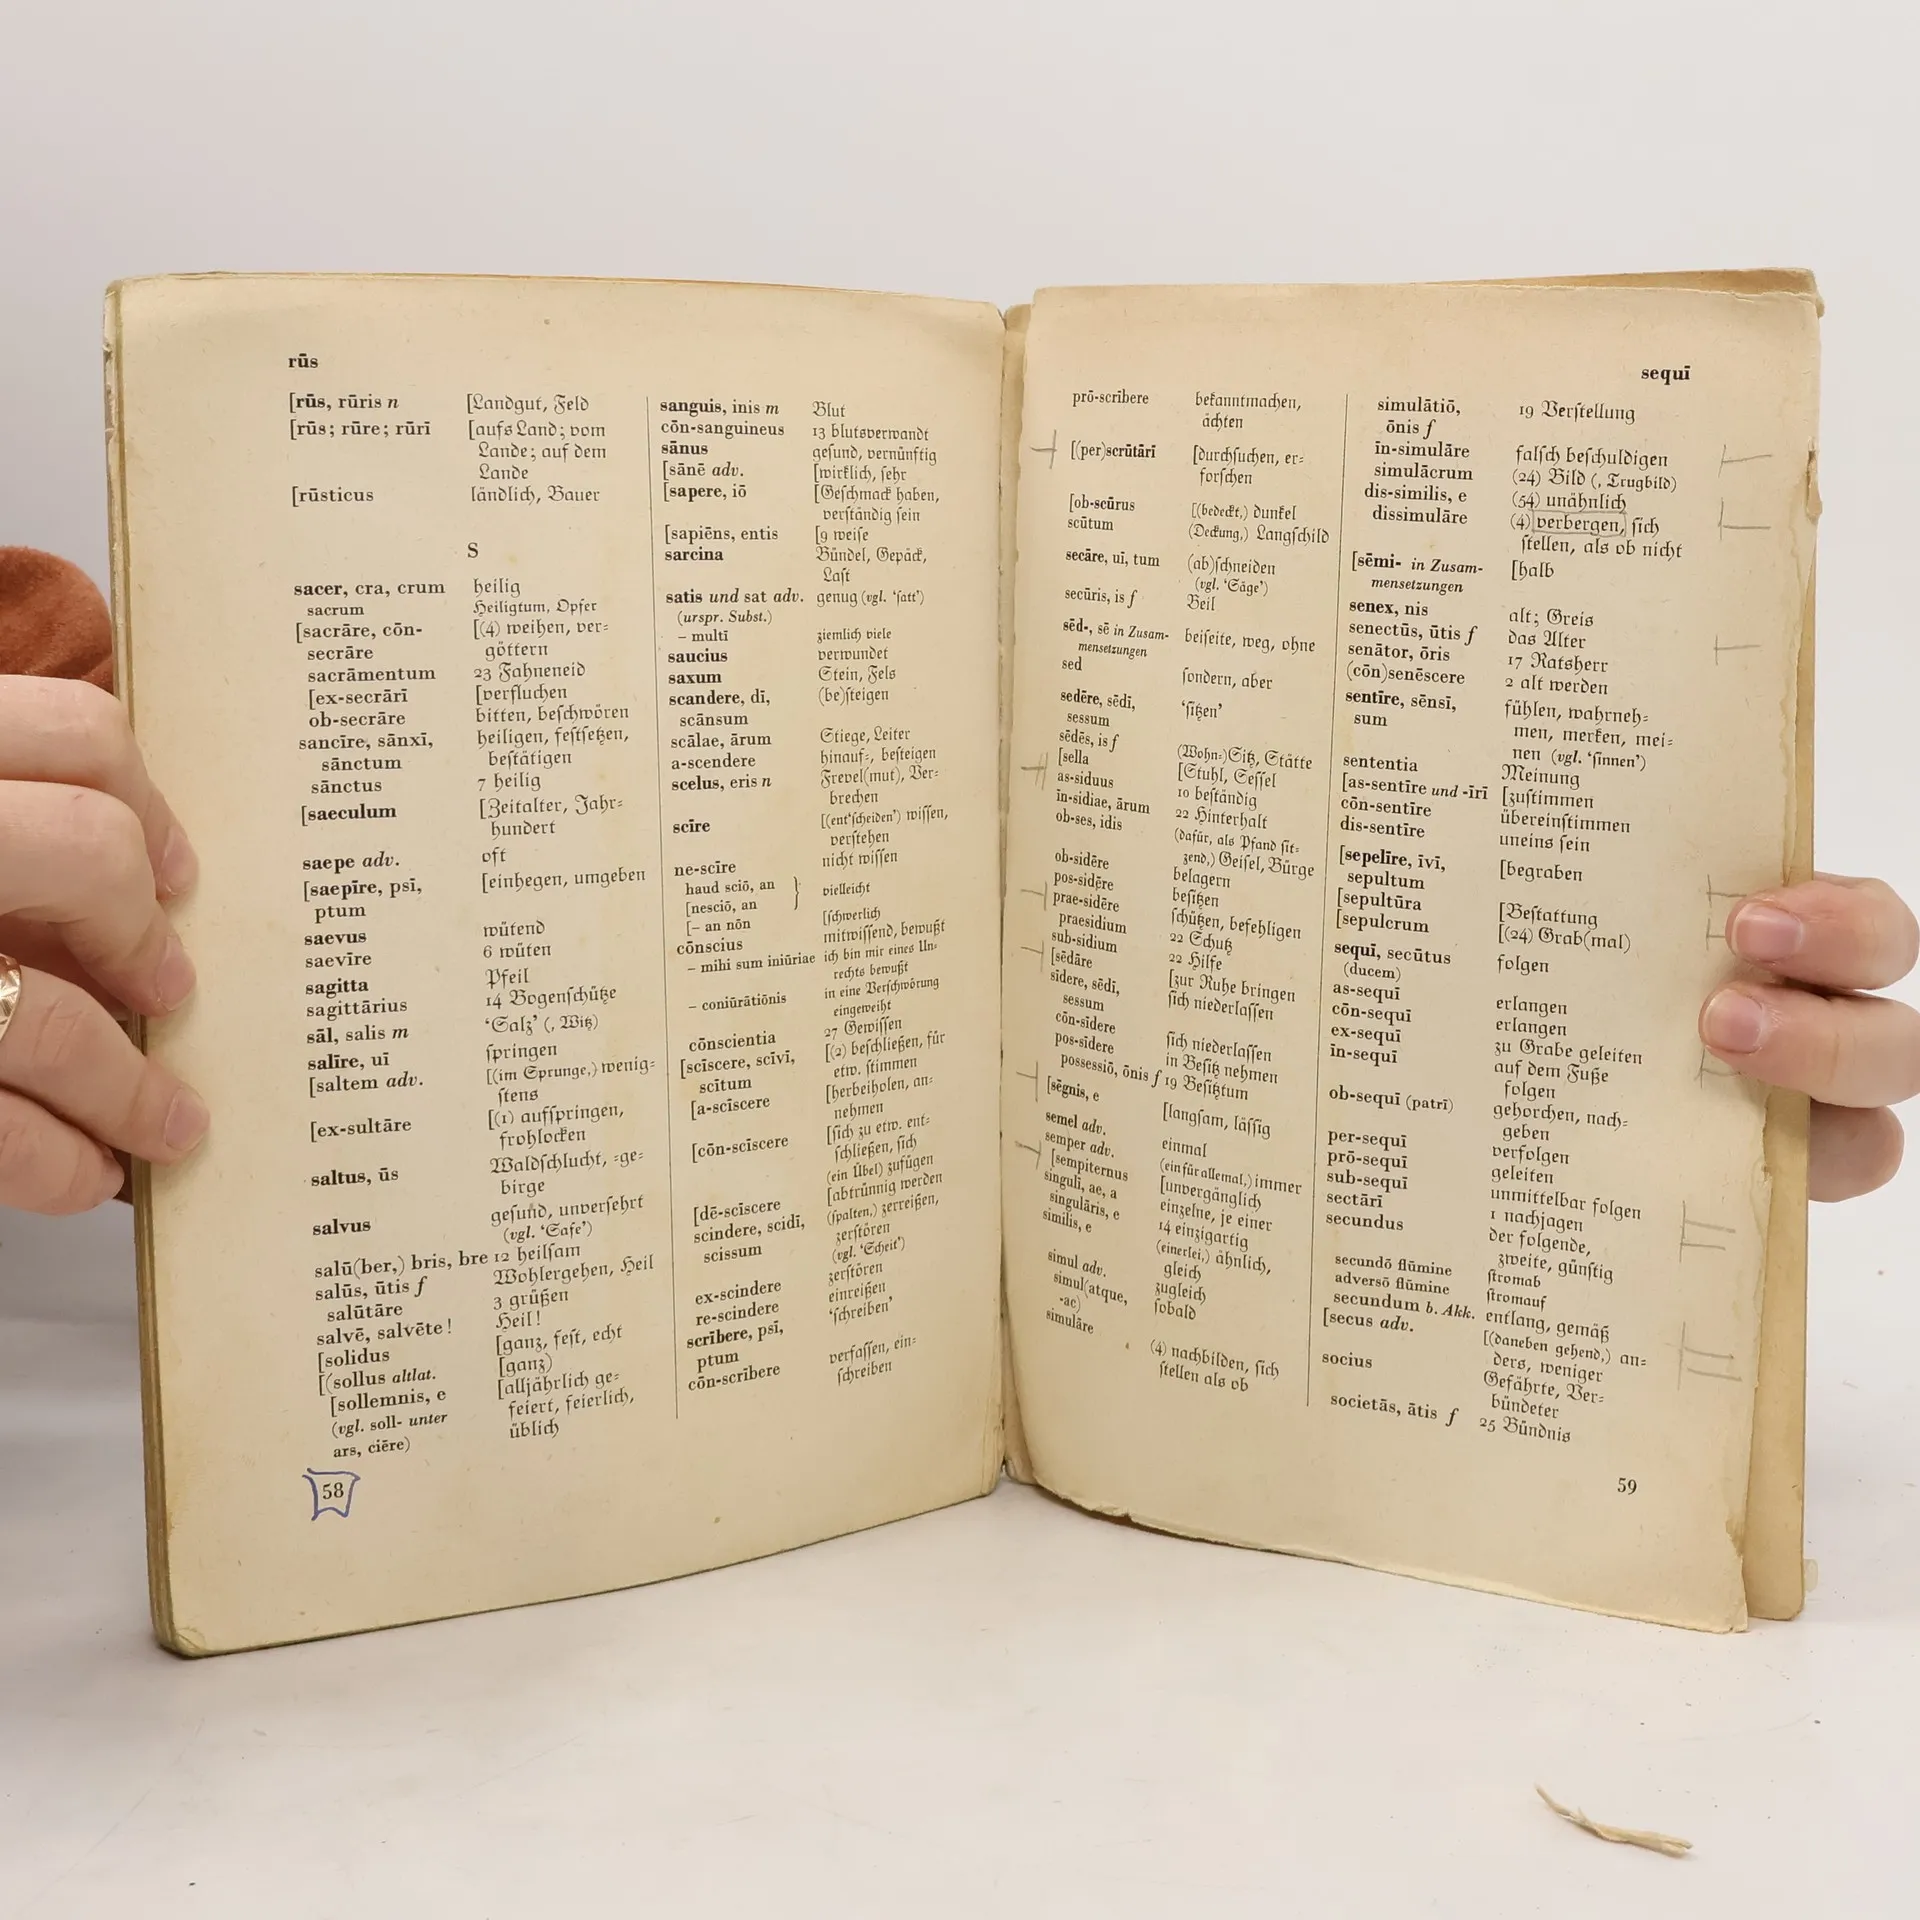 rūs
[rūs, rūris n [Landgut, Feld
[rūs; rūre; rūrī [aufs Land; vom
Lande; auf dem
Lande
[rūsticus ländlich, Bauer
S
sacer, cra, crum heilig
sacrum Heiligtum, Opfer
[sacrāre, cōn- [(4) weihen, ver=
secrāre göttern
sacrāmentum 23 Fahneneid
[ex-secrārī [verfluchen
ob-secrāre bitten, beschwören
sancīre, sānxī, heiligen, festsetzen,
sānctum bestätigen
sānctus 7 heilig
[saeculum [Zeitalter, Jahr=
hundert
saepe adv. oft
[saepīre, psī, [einhegen, umgeben
ptum
saevus wütend
saevīre 6 wüten
sagitta Pfeil
sagittārius 14 Bogenschütze
sāl, salis m ‘Salz’ (, Witz)
salīre, uī springen
[saltem adv. [(im Sprunge,) wenig=
stens
[ex-sultāre [(1) aufspringen,
frohlocken
saltus, ūs Waldschlucht, =ge=
birge
salvus gesund, unversehrt
(vgl. ‘Safe’)
salū(ber,) bris, bre 12 heilsam
salūs, ūtis f Wohlergehen, Heil
salūtāre 3 grüßen
salvē, salvēte! Heil!
[solidus [ganz, fest, echt
[(sollus altlat. [ganz)
[sollemnis, e [alljährlich ge=
(vgl. soll- unter feiert, feierlich,
ars, ciēre) üblich
58
sanguis, inis m Blut
cōn-sanguineus 13 blutsverwandt
sānus gesund, vernünftig
[sānē adv. [wirklich, sehr
[sapere, iō [Geschmack haben,
verständig sein
[sapiēns, entis [9 weise
sarcina Bündel, Gepäck,
Last
satis und sat adv. genug (vgl. ‘satt’)
(urspr. Subst.)
– multī ziemlich viele
saucius verwundet
saxum Stein, Fels
scandere, dī, (be)steigen
scānsum
scālae, ārum Stiege, Leiter
a-scendere hinauf=, besteigen
scelus, eris n Frevel(mut), Ver=
brechen
scīre [(ent‘scheiden’) wissen,
verstehen
ne-scīre nicht wissen
haud sciō, an } vielleicht
[nesciō, an
[– an nōn [schwerlich
cōnscius mitwissend, bewußt
– mihi sum iniūriae ich bin mir eines Un=
rechts bewußt
– coniūrātiōnis in eine Verschwörung
eingeweiht
cōnscientia 27 Gewissen
[scīscere, scīvī, [(2) beschließen, für
scītum etw. stimmen
[a-scīscere [herbeiholen, an=
nehmen
[cōn-scīscere [sich zu etw. ent=
schließen, sich
(ein Übel) zufügen
[dē-scīscere [abtrünnig werden
scindere, scidī, (spalten,) zerreißen,
scissum zerstören
(vgl. ‘Scheit’)
ex-scindere zerstören
re-scindere einreißen
scrībere, psī, ‘schreiben’
ptum
cōn-scrībere verfassen, ein=
schreiben
sequī
prō-scrībere bekanntmachen,
ächten
[(per)scrūtārī [durchsuchen, er=
forschen
[ob-scūrus [(bedeckt,) dunkel
scūtum (Deckung,) Langschild
secāre, uī, tum (ab)schneiden
(vgl. ‘Säge’)
secūris, is f Beil
sēd-, sē in Zusam- beiseite, weg, ohne
mensetzungen
sed sondern, aber
sedēre, sēdī, ‘sitzen’
sessum
sēdēs, is f (Wohn=)Sitz, Stätte
[sella [Stuhl, Sessel
as-siduus 10 beständig
īn-sidiae, ārum 22 Hinterhalt
ob-ses, idis (dafür, als Pfand sit=
zend,) Geisel, Bürge
ob-sidēre belagern
pos-sidēre besitzen
prae-sidēre schützen, befehligen
praesidium 22 Schutz
sub-sidium 22 Hilfe
[sēdāre [zur Ruhe bringen
sīdere, sēdī, sich niederlassen
sessum
cōn-sīdere sich niederlassen
pos-sīdere in Besitz nehmen
possessiō, ōnis f 19 Besitztum
[sēgnis, e [langsam, lässig
semel adv. einmal
semper adv. (ein für allemal,) immer
[sempiternus [unvergänglich
singulī, ae, a einzelne, je einer
singulāris, e 14 einzigartig
similis, e (einerlei,) ähnlich,
gleich
simul adv. zugleich
simul(atque, sobald
-ac)
simulāre (4) nachbilden, sich
stellen als ob
simulātiō, 19 Verstellung
ōnis f
īn-simulāre falsch beschuldigen
simulācrum (24) Bild (, Trugbild)
dis-similis, e (54) unähnlich
dissimulāre (4) verbergen, sich
stellen, als ob nicht
[sēmi- in Zusam- [halb
mensetzungen
senex, nis alt; Greis
senectūs, ūtis f das Alter
senātor, ōris 17 Ratsherr
(cōn)senēscere 2 alt werden
sentīre, sēnsī, fühlen, wahrneh=
sum men, merken, mei=
nen (vgl. ‘sinnen’)
sententia Meinung
[as-sentīre und -īrī [zustimmen
cōn-sentīre übereinstimmen
dis-sentīre uneins sein
[sepelīre, īvī, [begraben
sepultum
[sepultūra [Bestattung
[sepulcrum [(24) Grab(mal)
sequī, secūtus folgen
(ducem)
as-sequī erlangen
cōn-sequī erlangen
ex-sequī zu Grabe geleiten
īn-sequī auf dem Fuße
folgen
ob-sequī (patrī) gehorchen, nach=
geben
per-sequī verfolgen
prō-sequī geleiten
sub-sequī unmittelbar folgen
sectārī 1 nachjagen
secundus der folgende,
zweite, günstig
secundō flūmine stromab
adversō flūmine stromauf
secundum b. Akk. entlang, gemäß
[secus adv. [(daneben gehend,) an=
ders, weniger
socius Gefährte, Ver=
bündeter
societās, ātis f 25 Bündnis
59